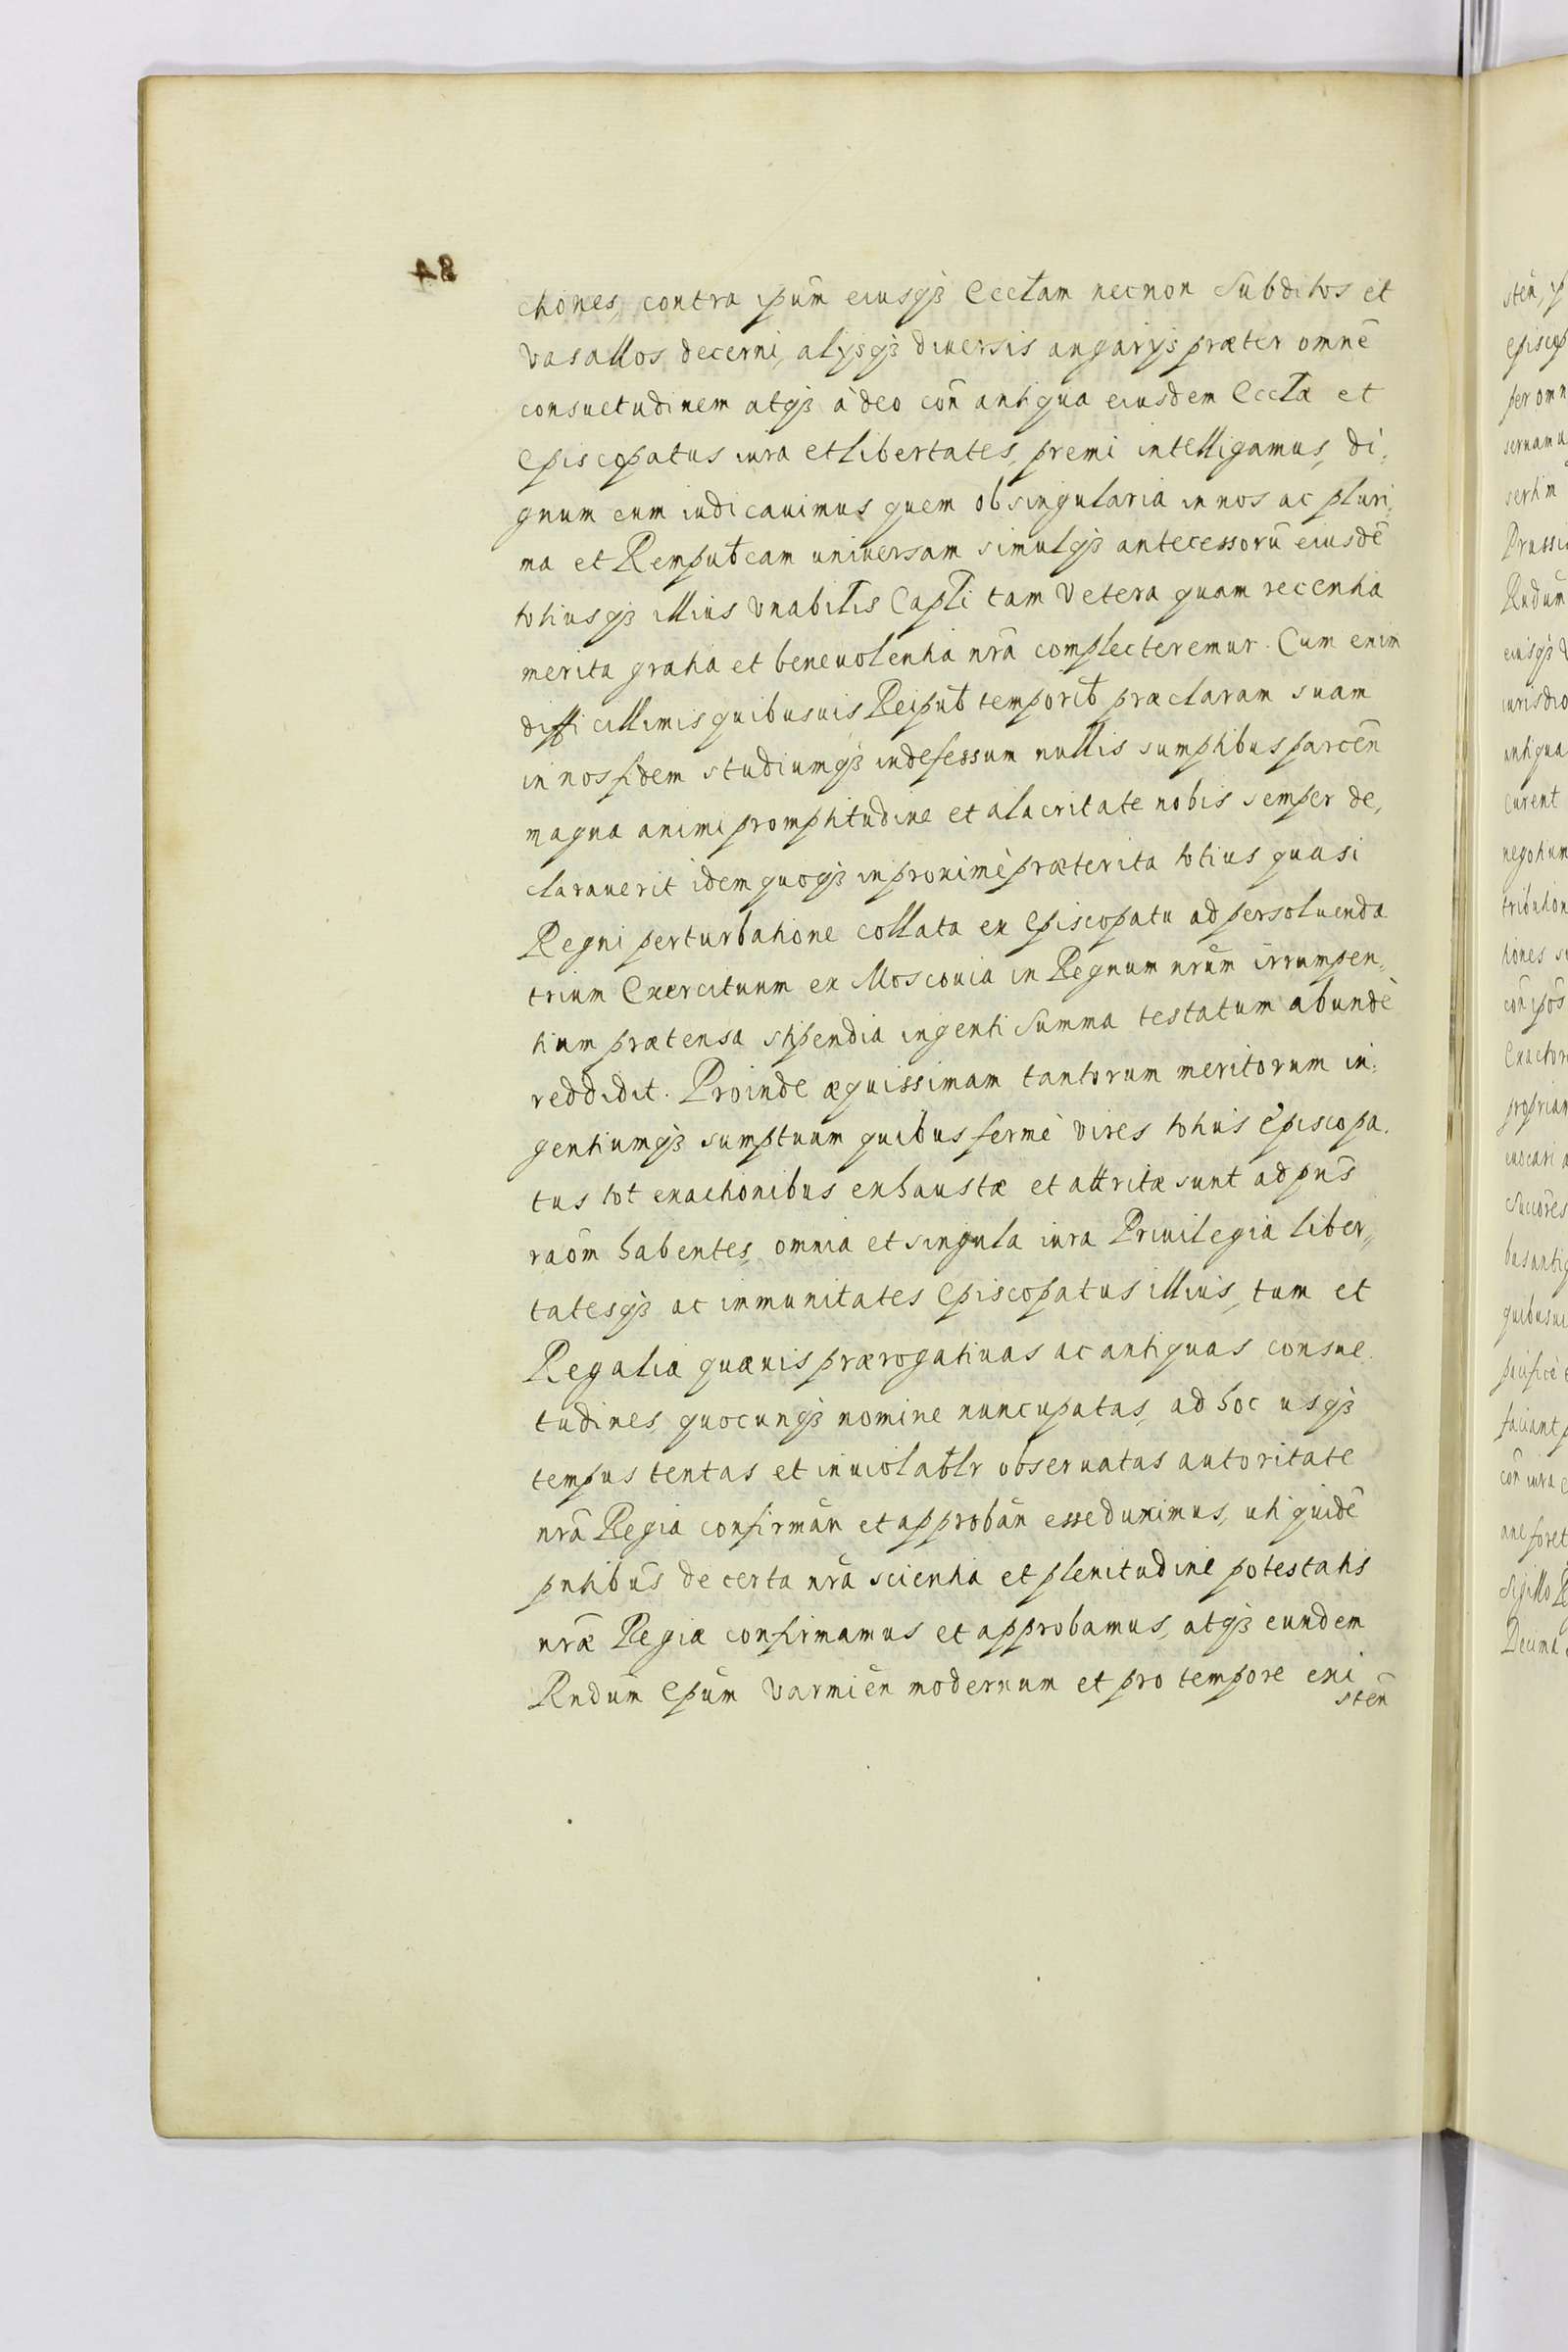 48
ctiones, contra ipūm eiusqȝ Eccłam necnon Subditos et
vasallos decerni, alijsqȝ diuersis angarijs præter omnē
consuetudinem atqȝ àdeo con̄ antiqua eiusdem Eccłæ et
Episcopatus iura et libertates, premi intelligamus, di,
gnum eum iudicauimus quem ob singularia in nos ac pluri,
ma et Rempubłcam uniuersam simulqȝ antecessorū eiusdē
totiusqȝ illius vnabilis Capłi tam vetera quam recentia
merita gratia et beneuolentia nr̄a complecteremur. Cum enim
difficillimis quibusuis Reipub temporib præclaram suam
in nos fidem studiumqȝ indefessum nullis sumptibus parcēn
magna animi promptitudine et alacritate nobis semper de,
clarauerit idem quoqȝ in proximè præterita totius quasi
Regni perturbatione collata ex Episcopatu ad persoluenda
trium Exercituum ex Moscouia in Regnum nrūm irrumpen,
tium prætensa stipendia ingenti Summa testatum abundè
reddidit. Proinde æquissimam tantorum meritorum in,
gentiumqȝ sumptuum quibus fermè vires totius Episcopa,
tus tot exactionibus exhaustæ et attritæ sunt ad pn̄s
raōm habentes, omnia et singula iura Priuilegia liber,,
tatesqȝ ac immunitates Episcopatus illius, tum et
Regalia quæuis prærogatiuas ac antiquas consue,
tudines quocunqȝ nomine nuncupatas, ad hoc usqȝ
tempus tentas et inuiolabłr obseruatas autoritate
nr̄a Regia confirmān et approbān esse duximus, uti quidē
pntibūs de certa nr̄a scientia et plenitudine potestatis
nr̄æ Regiæ confirmamus et approbamus, atqȝ eundem
Rndum Epūm Varmiēn modernum et pro tempore exi
stēn
stēn, p
Episcop
per omn
seruamu
sertim
Prussi
Rndūm
eiusqȝ V
iurisdic
antiqua
curent
negotium
tribution
tiones su
con̄ ipōs
Exactor
proprian
euocari a
Succōres
bus antiq
quibusui
pacificè
faciant p
con̄ iura e
ane foret
Sigillo R
Decima